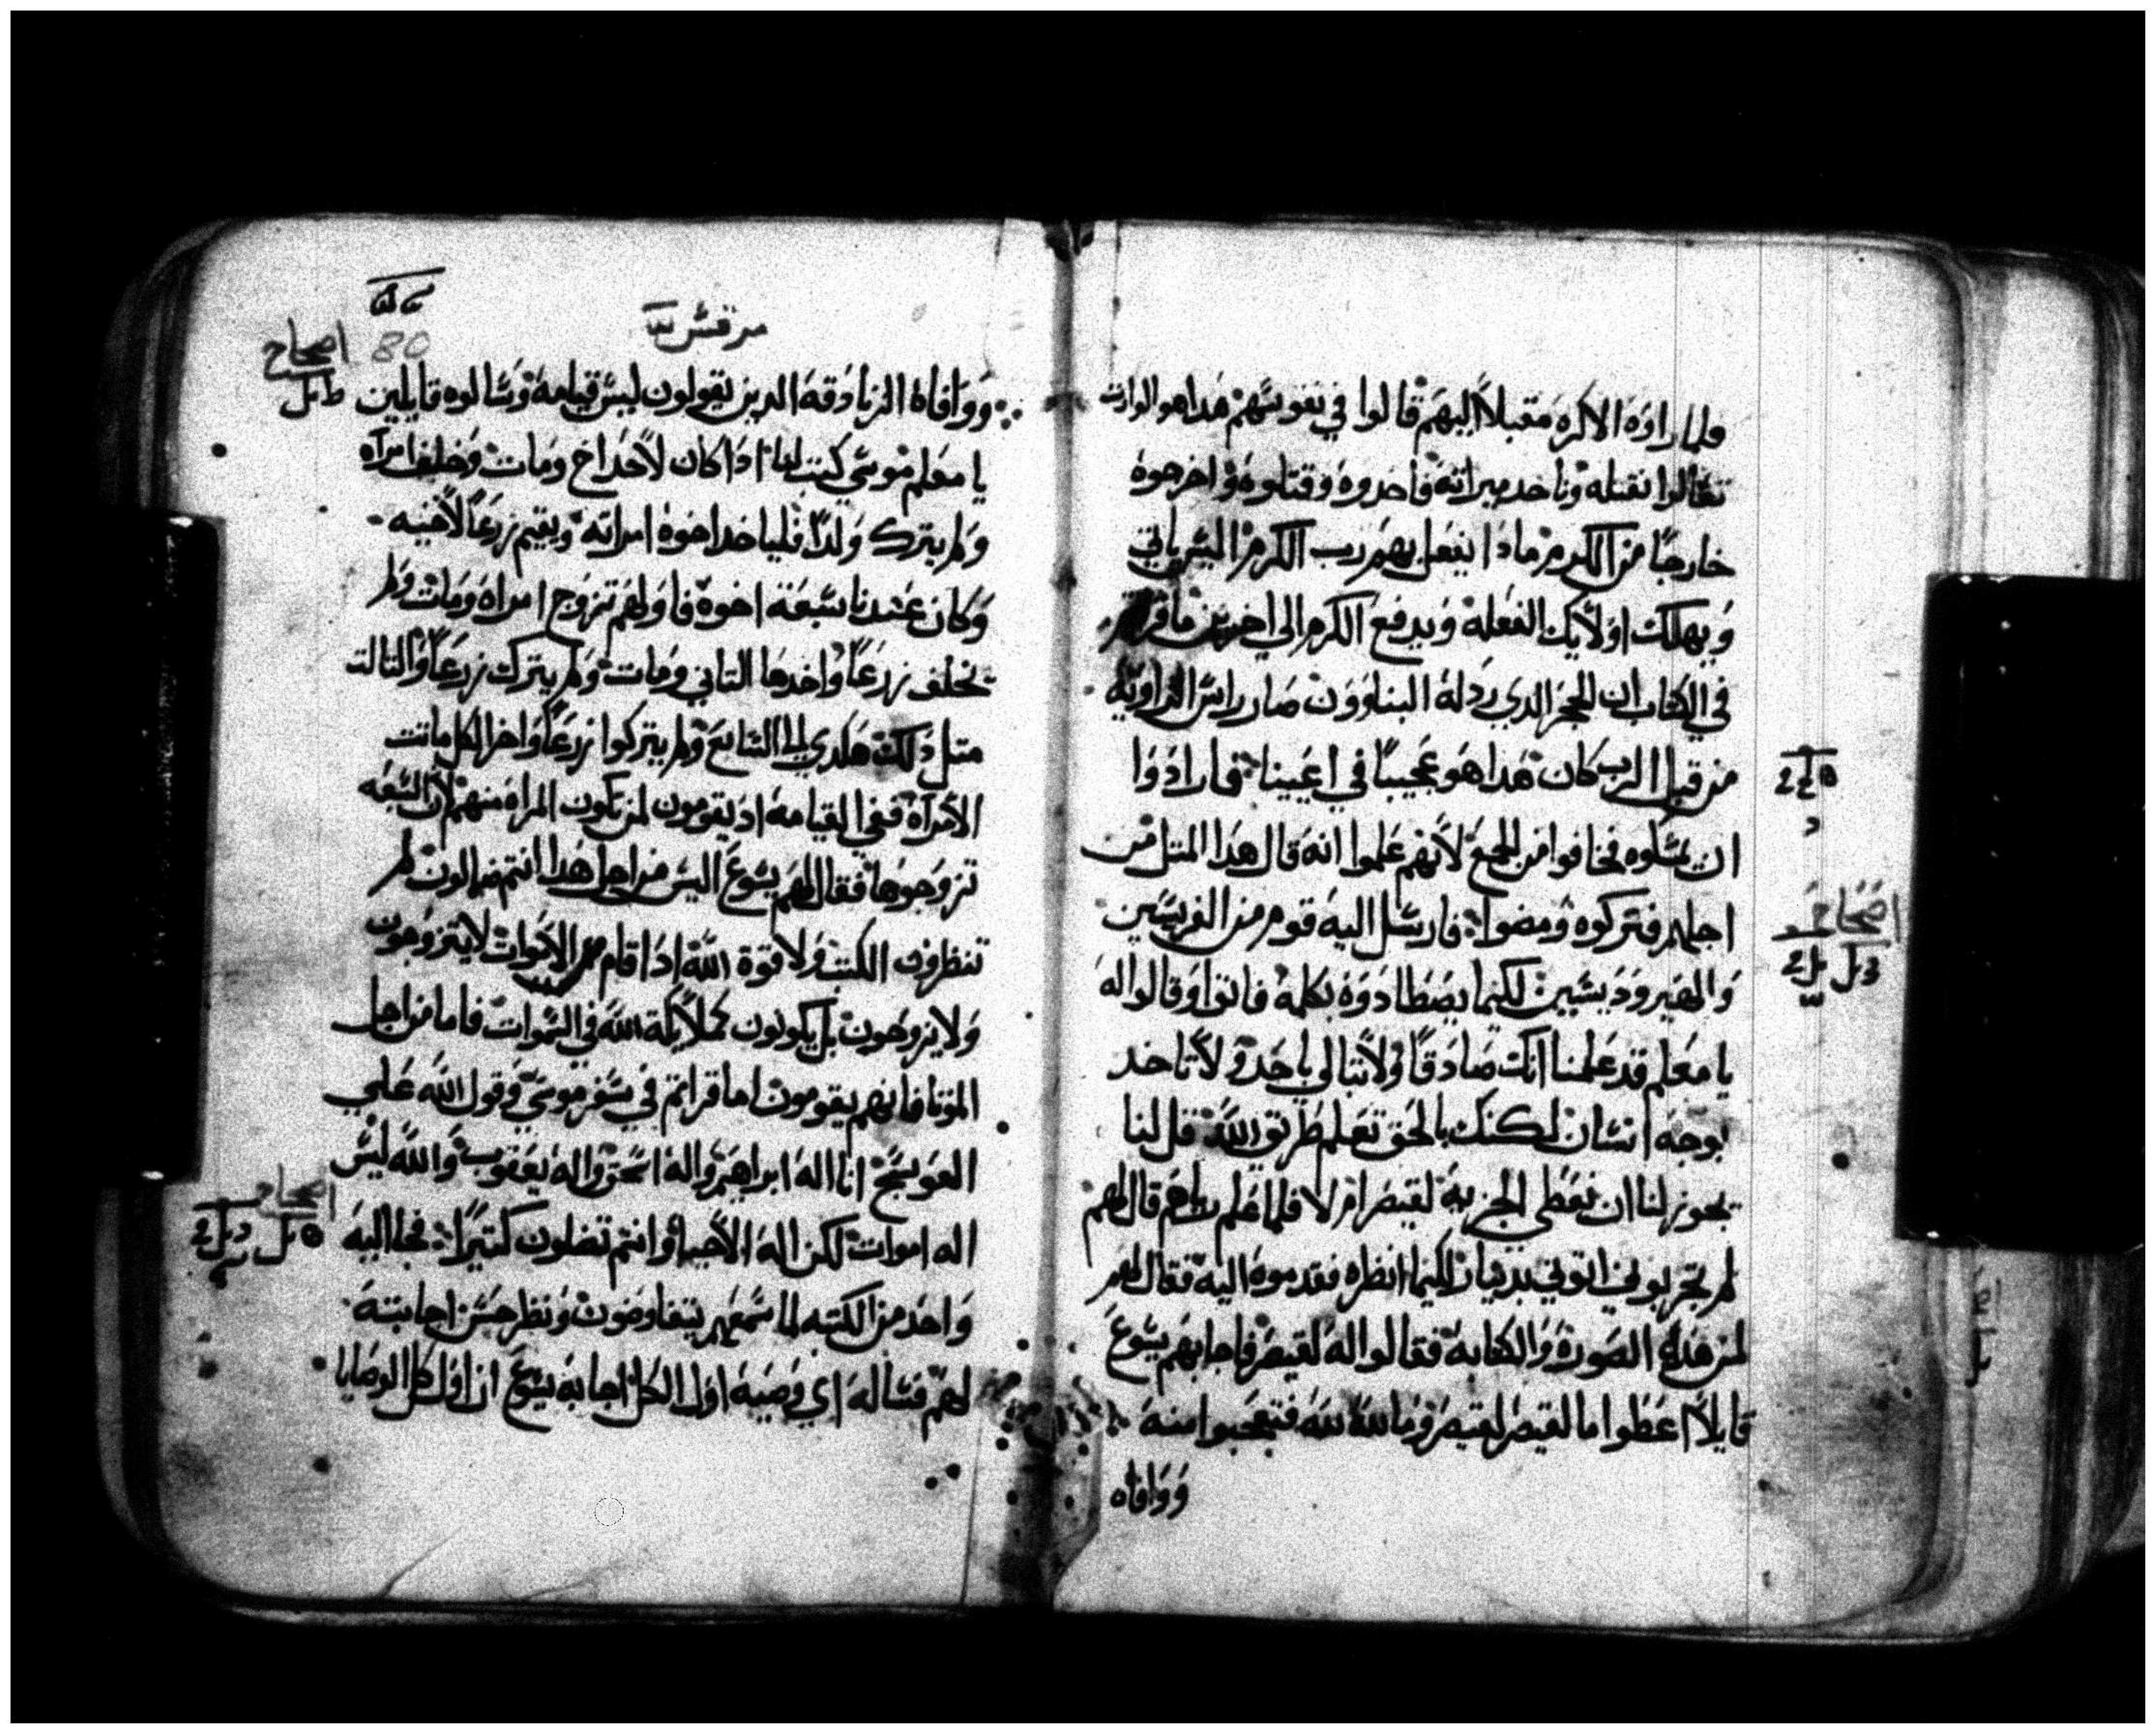 فلما راوه الاكره مقبلاً اليهم قالوا في نفوسهم هدا هو الوارت
تعالوا نقتله وناخد ميراته فاخدوه وقتلوه واخرجوه
خارجًا من الكرم مادا يفعل بهم رب الكرم اليس ياتي
ويهلك اولايك الفعله ويدفع الكرم الي اخرين ما قراتم
في الكتاب ان الحجر الدي ردله البناوون صار راس الزاويه
من قبل الرب كان هدا هو عجيبًا في اعيننا فارادوا
ان يمسكوه فخافوا من الجمع لانهم علموا انه قال هدا المتل من
اجلهم فتركوه ومضوا فارسل اليه قوم من الفريسين
والهيرودسيين لكيما يصطادوه بكلمه فاتوا وقالوا له
يا معلم قد علمنا انك صادقًا ولا تبالي باحد ولا تاخد
بوجه انسان لكنك بالحق تعلم طريق الله قل لنا
يجوز لنا ان نعطي الجزيه لقيصر ام لا فلما علم رياهم قال لهم
لم تجربوني اتوني بدينار لكيما انظره فقدموه اليه فقال لهم
لمن هده الصوره والكتابه فقالوا له لقيصر فاجابهم يسوع
قايلاً اعطوا ما لقيصر لقيصر وما لله لله فتعجبوا منه
ووافاه
مرقس
80
اصحاح
ووافاه الزنادقه الدين يقولون ليس قيامه وسالوه قايلين
يا معلم موسي كتب لنا ادا كان لاحد اخ ومات وخلف امراه
ولم يترك ولدًا فلياخد اخوه امراته ويقيم زرعًا لاخيه
وكان عندنا سبعة اخوه فاولهم تزوج امراه ومات ولم
يخلف زرعًا واخدها التاني ومات ولم يترك زرعًا والتالت
متل دلك هكدي الي السابع ولم يتركوا زرعًا واخر الكل ماتت
الامراه ففي القيامه اد يقومون لمن تكون المراه منهم لان السبعه
تزوجوها فقال لهم يسوع اليس من اجل هدا انتم ضالون لم
تنظرون الكتب ولا قوة الله ادا قام من الاموات لا يتزوجون
ولا يزوجون بل يكونون كملايكة الله في السموات فاما من اجل
الموتا فانهم يقومون اما قراتم في سفر موسي وقول الله علي
العوسج انا اله ابراهيم واله اسحق واله يعقوب والله ليس
اله اموات لكن اله الاحيا وانتم تضلون كتيرًا فجا اليه
واحد من الكتبه لما سمعهم يتفاوضون ونظر حسن اجابته
لهم فساله اي وصيه اول الكل اجابه يسوع ان اول كل الوصايا